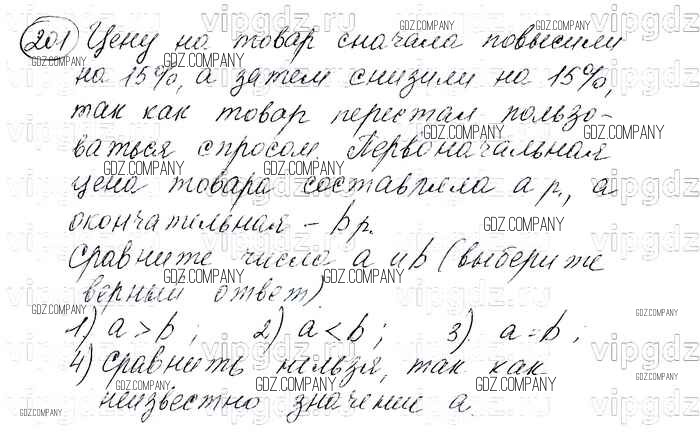 201 Цену на товар сначала повысили
на 15%, а затем снизили на 15%,
так как товар перестал пользо-
ваться спросом. Первоначальная
цена товара составляла a р., а
окончательная - b р.
Сравните числа a и b (выберите
верный ответ)
1) a > b ; 2) a < b ; 3) a = b ;
4) сравнить нельзя, так как
неизвестно значение a.